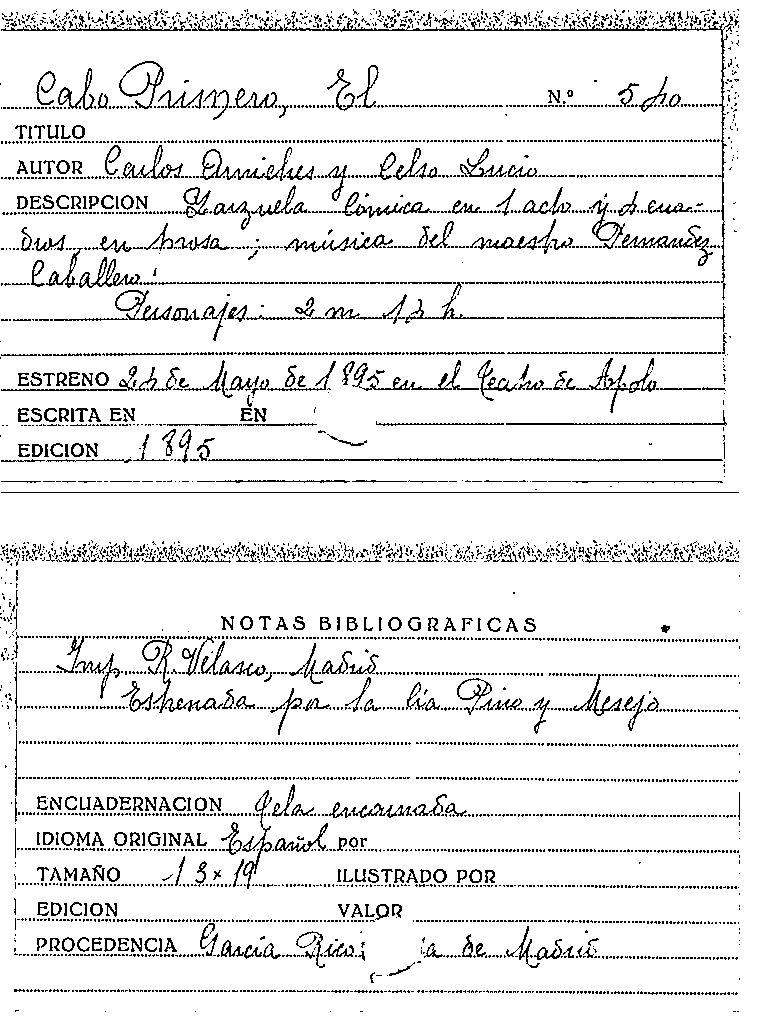 Cabo Primero, El N.º 540
TITULO
AUTOR Carlos Arniches y Celso Lucio
DESCRIPCION Zarzuela Cómica en 1 acto y 4 cua-
dros, en prosa; música del maestro Fernandez
Caballero.
Personajes: 2 m 14 h.
ESTRENO 24 de Mayo de 1895 en el Teatro de Apolo
ESCRITA EN EN
EDICION 1895
NOTAS BIBLIOGRAFICAS
Imp R. Velasco, Madrid
Estrenada por la Cía Pino y Mesejo
ENCUADERNACION Tela encarnada
IDIOMA ORIGINAL Español por
TAMAÑO 13 x 19 ILUSTRADO POR
EDICION VALOR
PROCEDENCIA García Rico; de Madrid